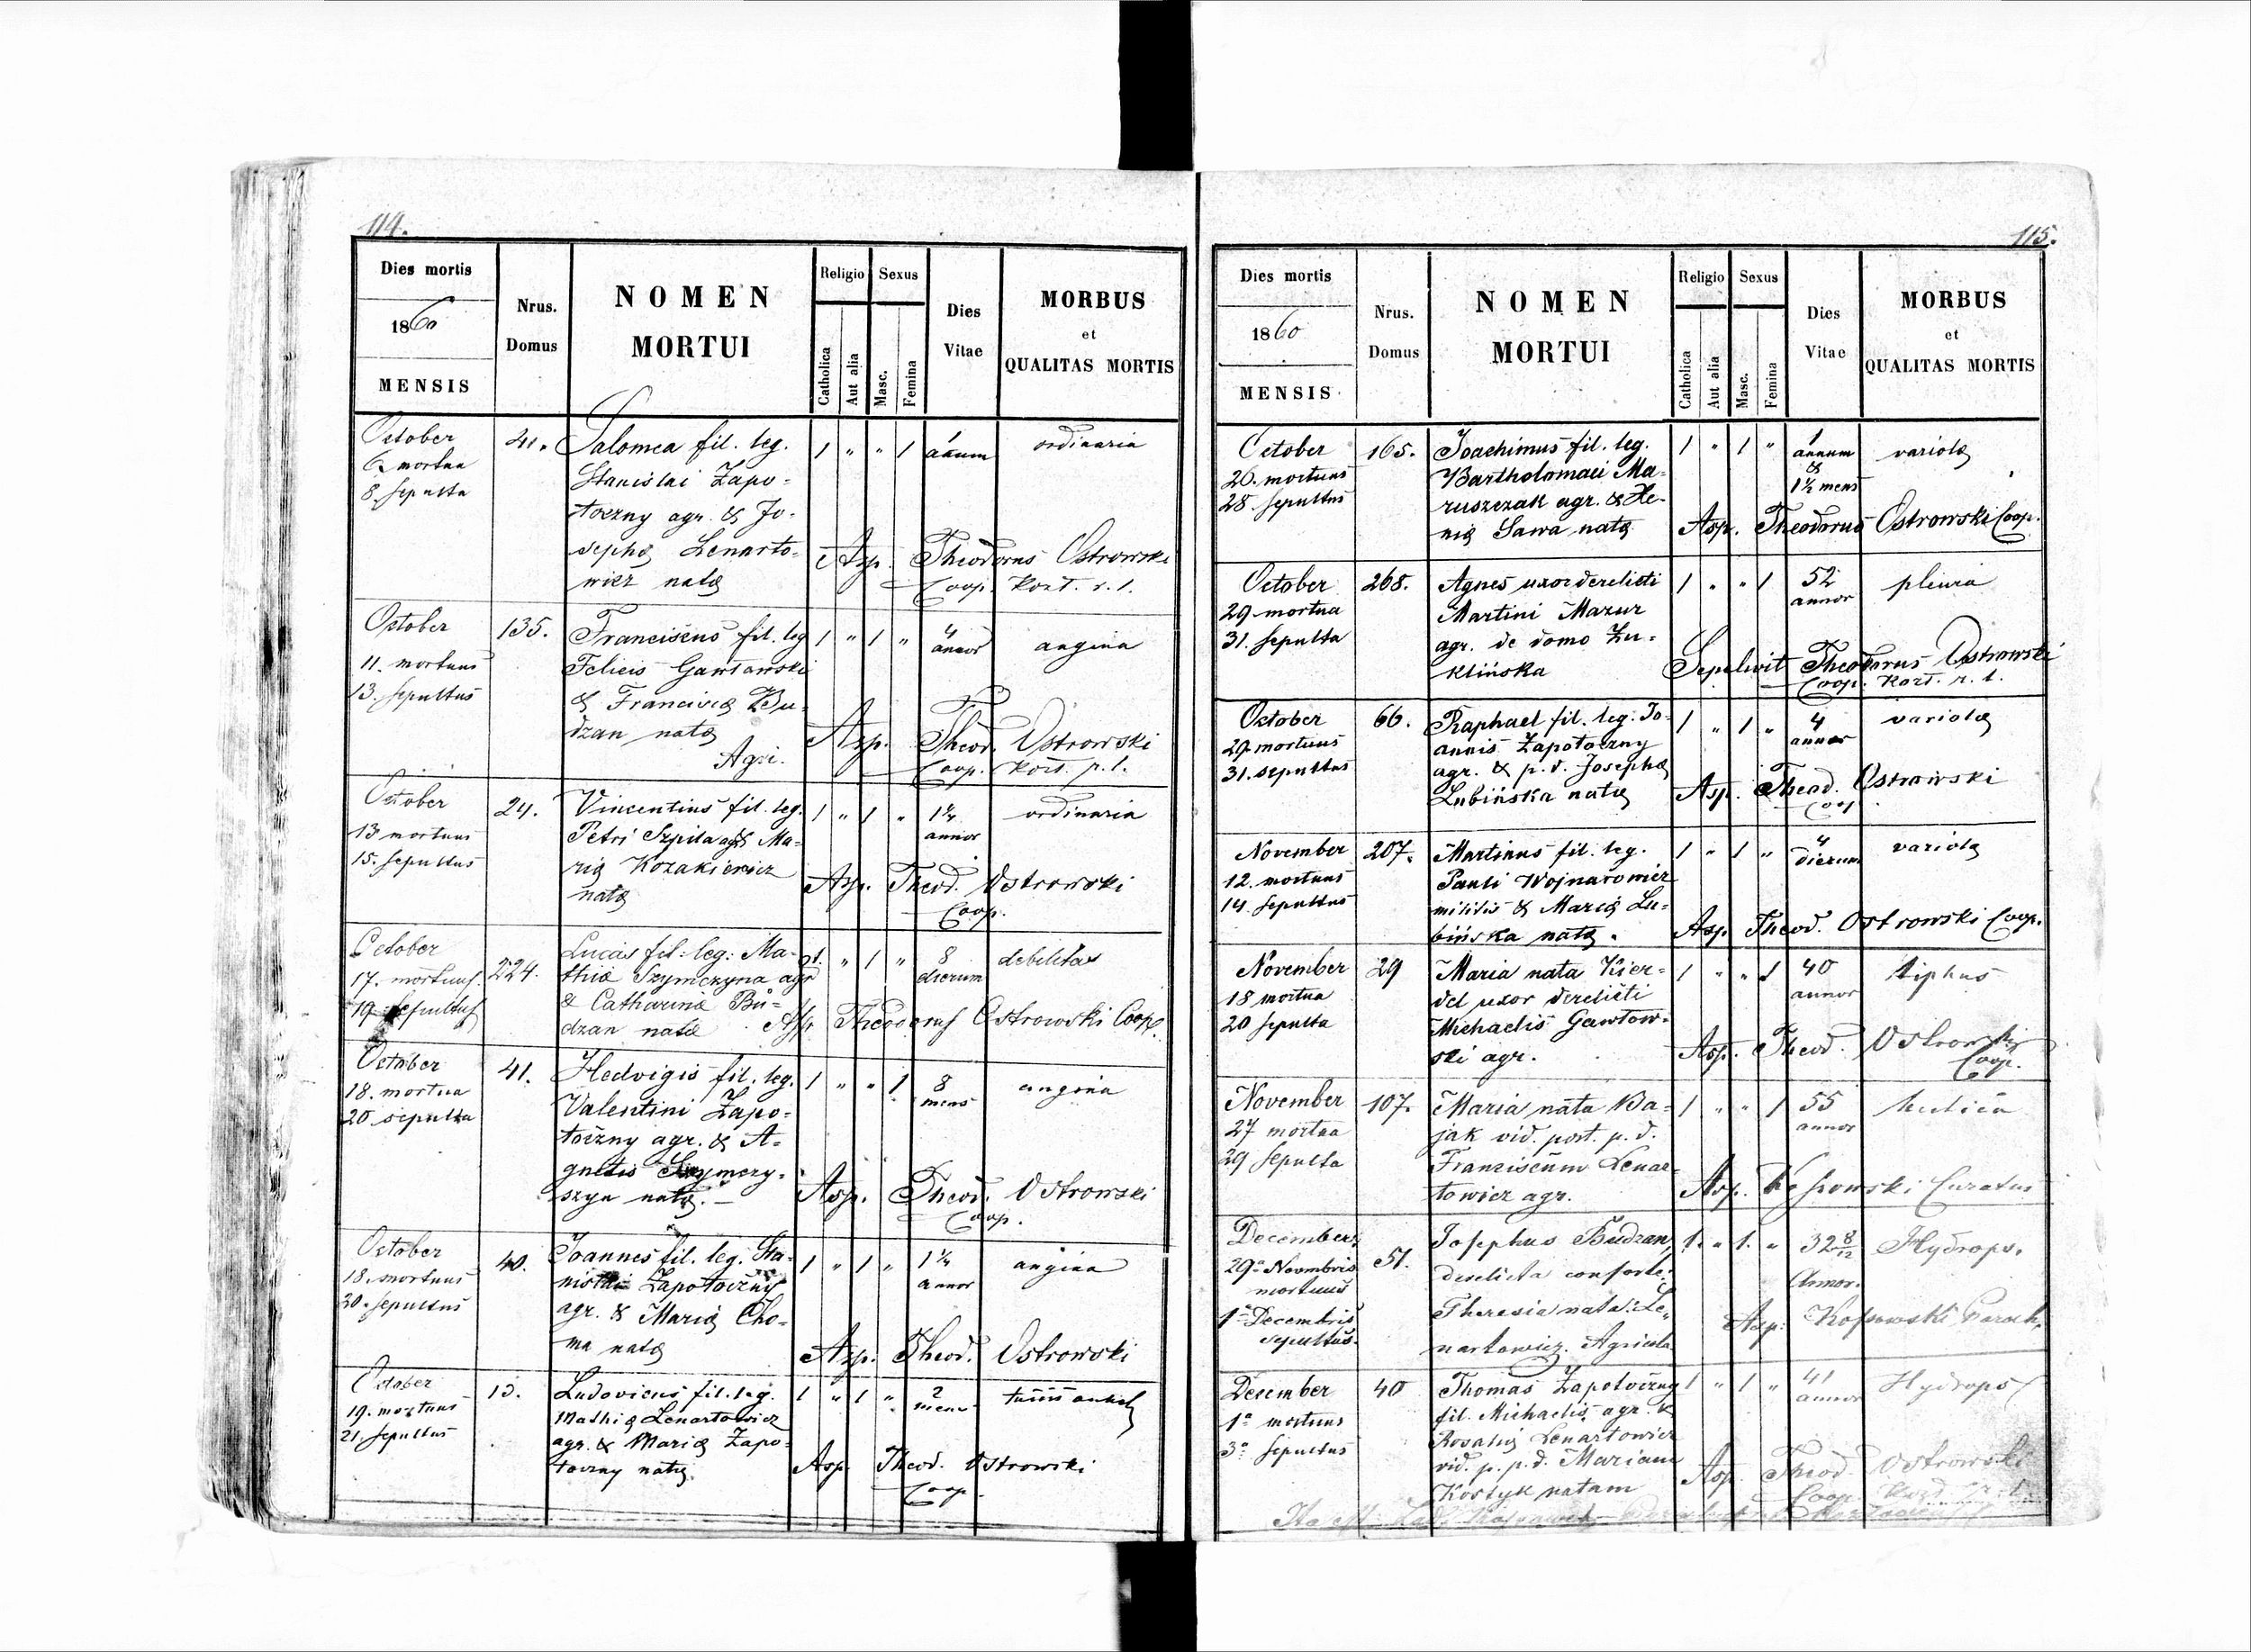 114.
Dies mortis
1860
MENSIS
Nrus.
Domus
NOMEN
MORTUI
Religio
Sexus
Catholica
Aut alia
Masc.
Femina
Dies
Vitae
MORBUS
et
QUALITAS MORTIS
October
6 mortua
8. sepulta
41.
Salomea fil. leg.
Stanislai Zapo-
toczny agr. & Jo-
sephæ Lenarto-
wicz natæ
1 " " 1
1
annum
ordinaria
Asp. Theodorus Ostrowski
Coop. Korz. r. l.
October
11. mortuus
13. sepultus
135.
Franciscus fil. leg
Felicis Gawłowski
& Franciscæ Bu-
dzan natæ
Agri.
1 " 1 "
4
annor
angina
Asp. Theod. Ostrowski
Coop. Korz. r. l.
October
13 mortuus
15. sepultus
24.
Vincentius fil. leg.
Petri Szpila agr & Ma-
riæ Kozakiewicz
natæ
1 " 1 "
1½
annor
ordinaria
Asp. Theod. Ostrowski
Coop.
October
17. mortuus.
19. sepultus
224.
Lucas fil: leg: Ma-
thiæ Szymczyna agr
& Catharinæ Bu-
dzan natæ
1. " 1 "
8
dierum
debilitas
Asp Theodorus Ostrowski Coop.
October
18. mortua
20 sepulta
41.
Hedvigis fil. leg.
Valentini Zapo-
toczny agr. & A-
gnetis Szymczy-
szyn natæ. –
1 " " 1
8
mens
angina
Asp. Theod. Ostrowski
Coop.
October
18. mortuus
20. sepultus
40.
Joannes fil. leg. Sta-
nislai Zapotoczny
agr. & Mariæ Cho-
ma natæ
1 " 1 "
1¼
annor
angina
Asp. Theod. Ostrowski
October
19. mortuus
21. sepultus
13.
Ludovicus fil. leg.
Mathiæ Lenartowicz
agr. & Mariæ Zapo-
toczny natæ.
1 " 1 "
2
mens
tussis
Asp. Theod. Ostrowski
Coop.
115.
Dies mortis
1860
MENSIS
Nrus.
Domus
NOMEN
MORTUI
Religio
Sexus
Catholica
Aut alia
Masc.
Femina
Dies
Vitae
MORBUS
et
QUALITAS MORTIS
October
26. mortuus
28 sepultus
165.
Joachimus fil. leg.
Bartholomaei Ma-
ruszczak agr. & Xe-
niæ Sawa natæ
1 " 1 "
1
annum
&
1½ mens
variolæ
Asp. Theodorus Ostrowski Coop.
October
29 mortua
31. sepulta
268.
Agnes uxor derelicti
Martini Mazur
agr. de domo Zu-
klińska
1 " " 1
52
annor
pleura
Sepelivit Theodorus Ostrowski
Coop. Korz. r. l.
October
29 mortuus
31. sepultus
66.
Raphael fil. leg. Jo-
annis Zapotoczny
agr. & p. d. Josephæ
Lubińska natæ
1 " 1 "
4
annor
variolæ
Asp. Theod. Ostrowski
Coop
November
12. mortuus
14. sepultus
207.
Martinus fil. leg.
Pauli Wojnarowicz
militis & Mariæ Lu-
bińska natæ.
1 " 1 "
4
dierum
variolæ
Asp Theod. Ostrowski Coop.
November
18 mortua
20 sepulta
29
Maria nata Kier-
del uxor derelicti
Michaelis Gawłow-
ski agr.
1 " " 1
40
annor
tiphus
Asp. Theod. Ostrowski
Coop.
November
27 mortua
29 sepulta
107.
Maria nata Ba-
jak vid. post. p. d.
Franciscum Lenar-
towicz agr.
1 " " 1
55
annor
hectica
Asp. Kossowski Curatus
December.
29a Novembris
mortuus
1a Decembris
sepultus.
51.
Josephus Budzan,
derelicta consorte:
Theresia nata: Le-
nartowicz. Agricola
1. " 1. "
32 8/12
Annor.
Hydrops.
Asp: Kossowski Paroch.
December
1a mortuus
3a sepultus
40
Thomas Zapotoczny
fil. Michaelis agr. &
Rosaliæ Lenartowicz
vid. p. p. d. Mariam
Kostyk natam
1 " 1 "
41
annor
Hydrops
Asp. Theod. Ostrowski
Coop. Korz. r. l.